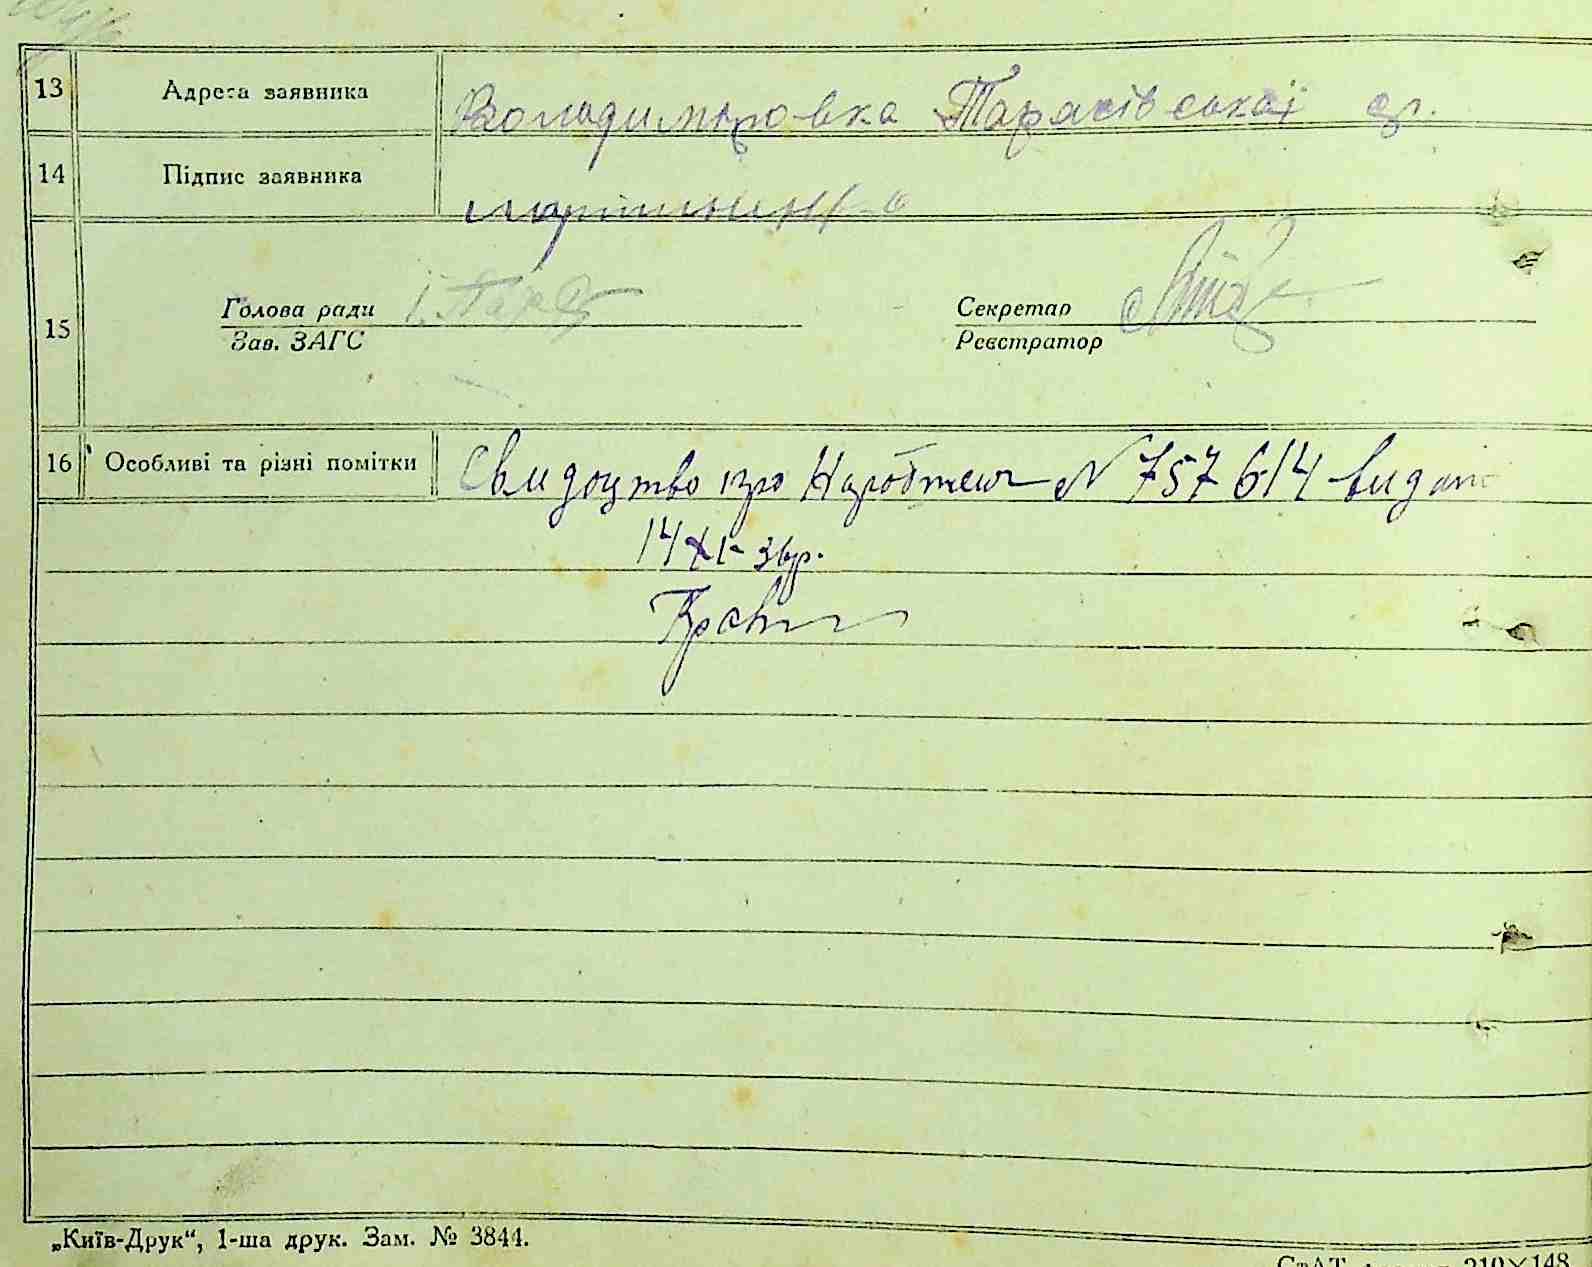 13 Адреса заявника Володимировка Тарасівської
14 Підпис заявника
15 Голова ради Секретар
Зав. ЗАГС Реєстратор
16 Особливі та різні помітки Свидоцтво про Народжен N 757614 видано
14 XI-36р.
„Київ-Друк“, 1-ша друк. Зам. № 3844.
210×148